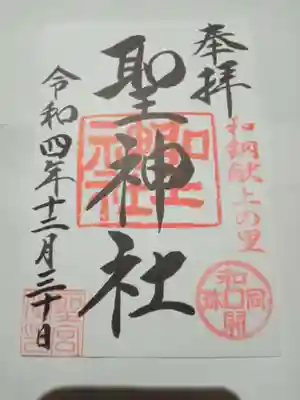 奉拝
和銅献上の里
聖神社
和同開珎
令和四年十二月三十日